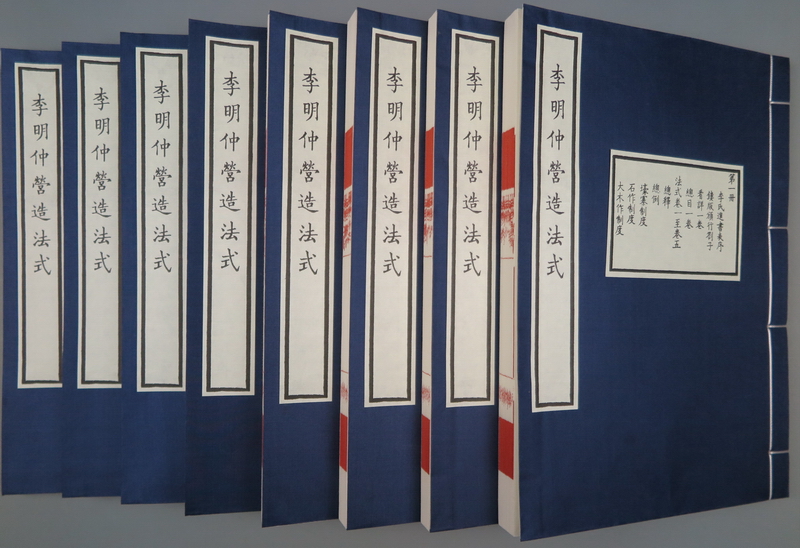 李明仲營造法式
李明仲營造法式
李明仲營造法式
李明仲營造法式
李明仲營造法式
李明仲營造法式
李明仲營造法式
李明仲營造法式
第一冊
李氏進書表序
鏤版頒行劄子
看詳一卷
總目一卷
法式卷一至卷五
總釋
總例
壕寨制度
石作制度
大木作制度